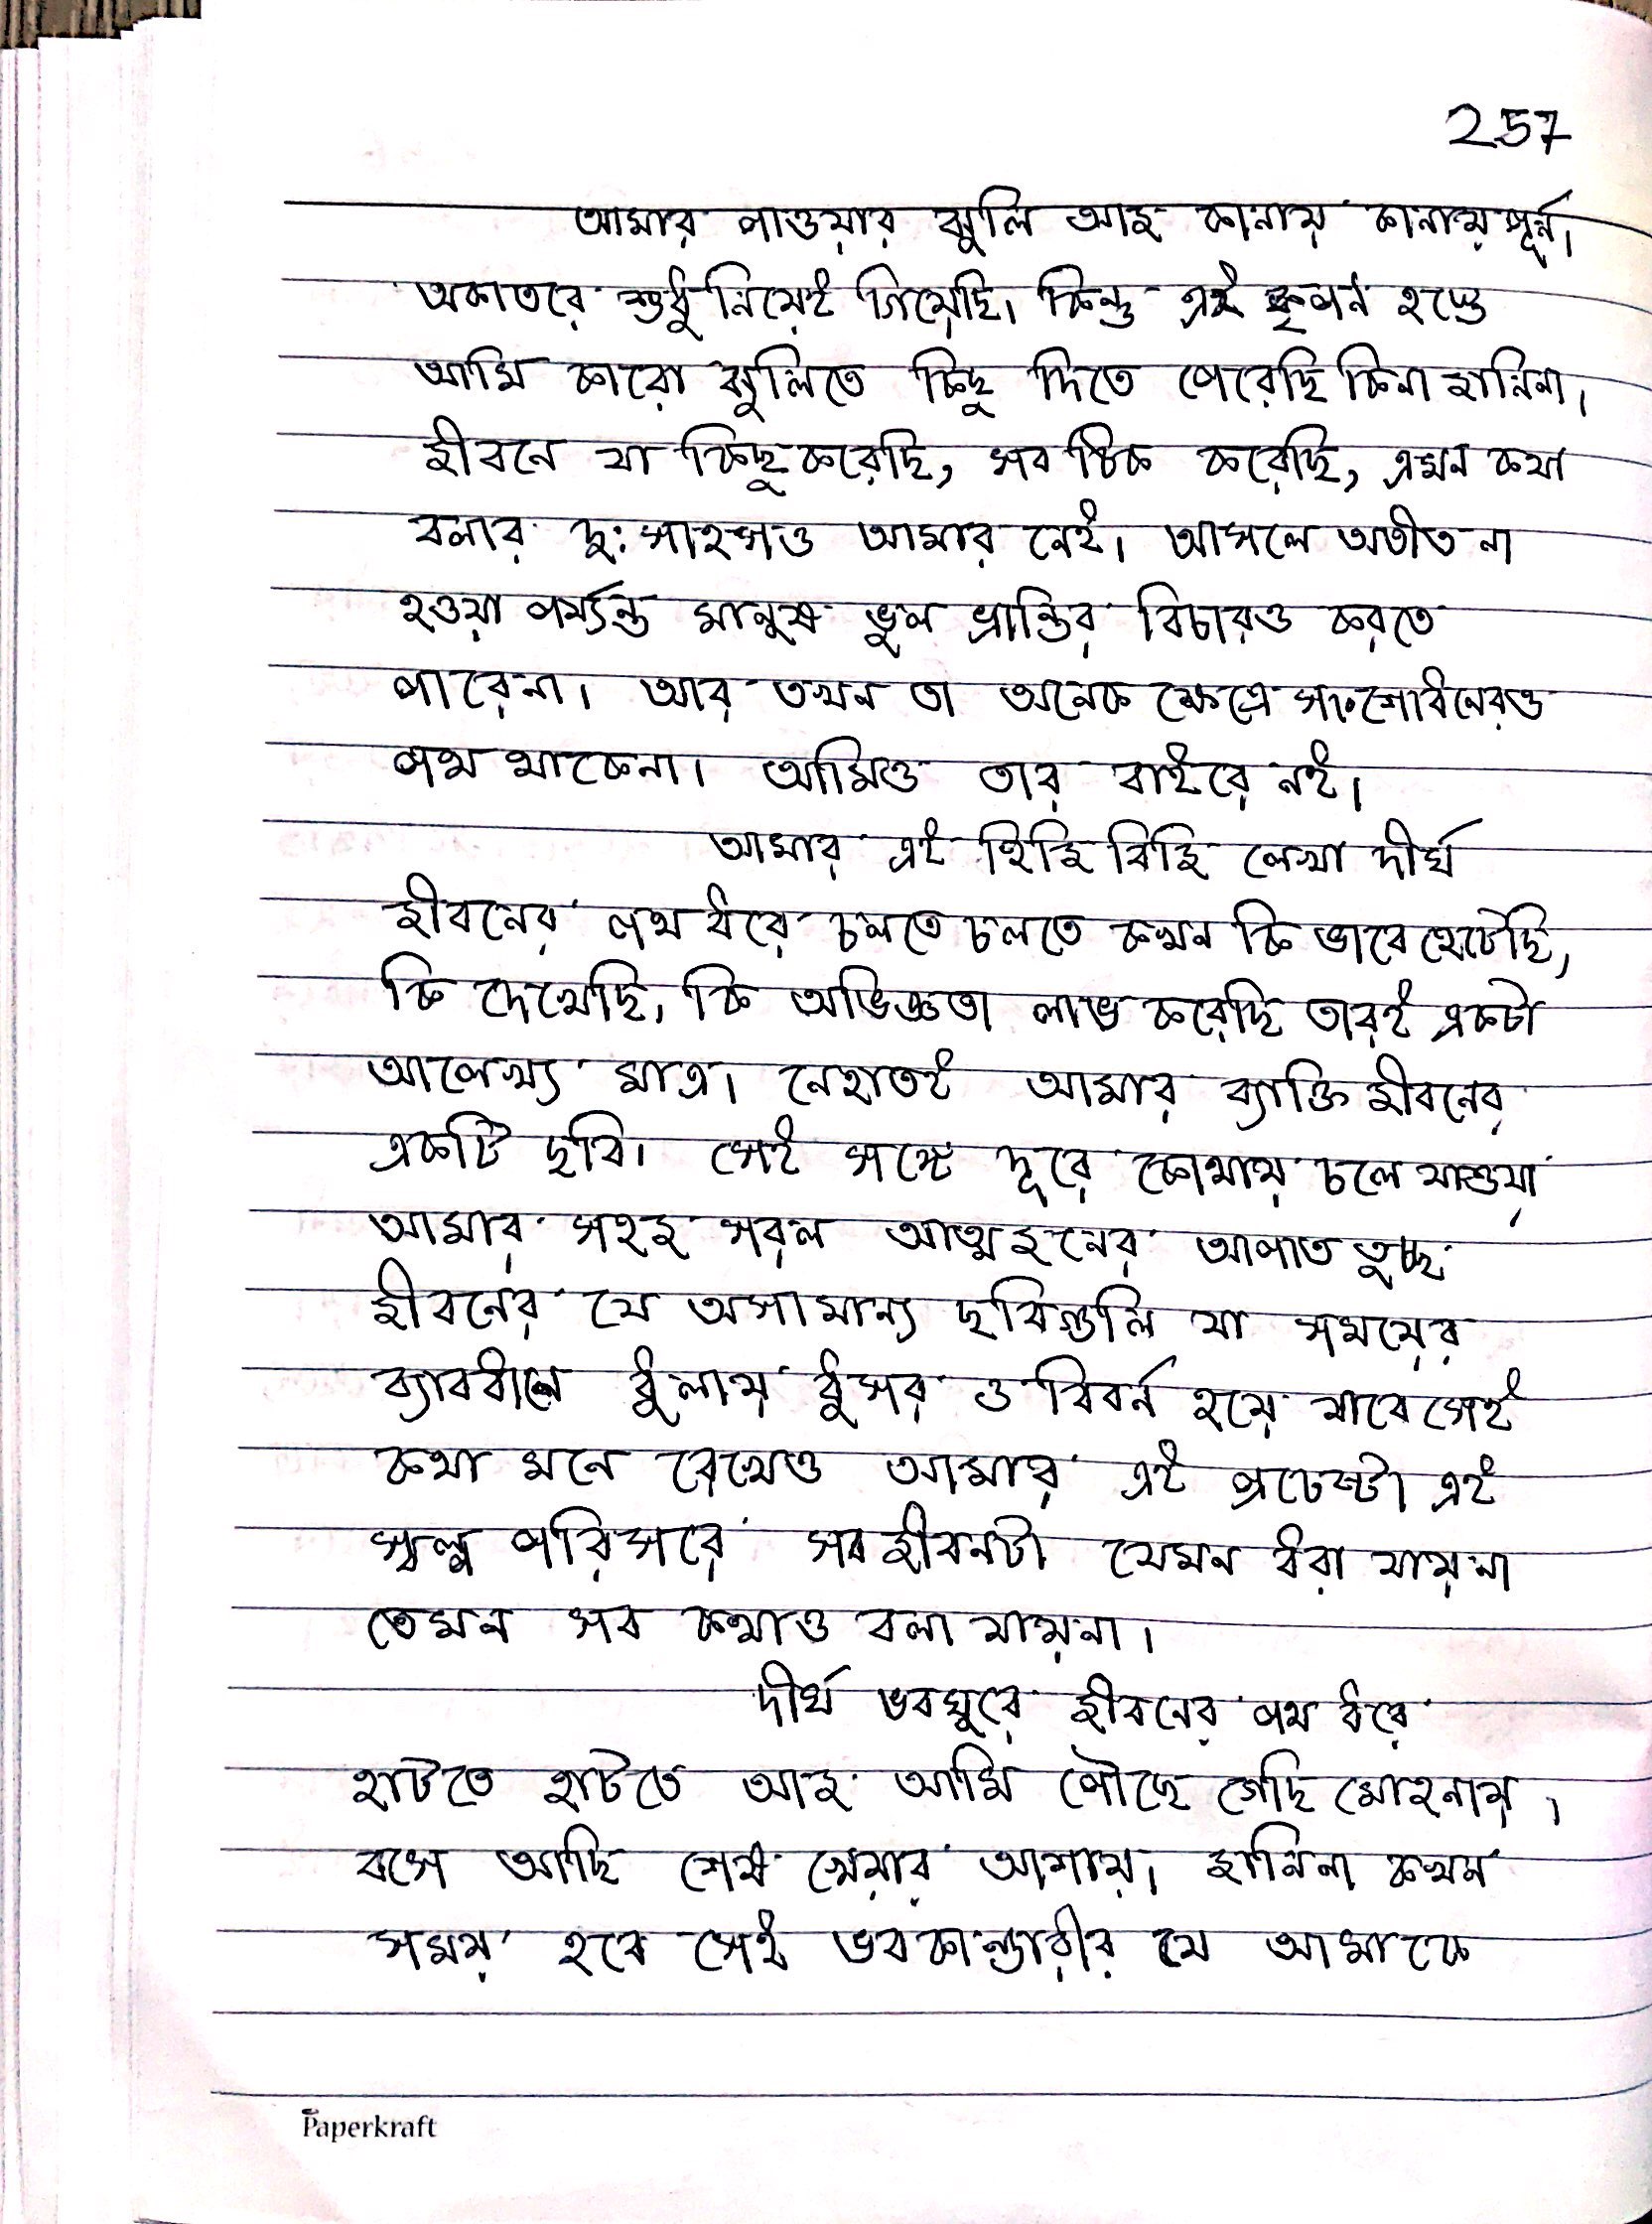 257
আমার পাওয়ার ঝুলি আজ কানায় কানায় পূর্ন।
অকাতরে শুধু নিয়েই গিয়েছি। কিন্তু এই কৃপন হস্তে
আমি কারো ঝুলিতে কিছু দিতে পেরেছি কিনা জানিনা।
জীবনে যা কিছু করেছি, সব ঠিক করেছি, এমন কথা
বলার দু:সাহসও আমার নেই। আসলে অতীত না
হওয়া পর্য্যন্ত মানুষ ভুল ভ্রান্তির বিচারও করতে
পারেনা। আর তখন তা অনেক ক্ষেত্রে সংশোধনেরও
পথ থাকেনা। আমিও তার বাইরে নই।
আমার এই হিজি বিজি লেখা দীর্ঘ
জীবনের পথ ধরে চলতে চলতে কখন কি ভাবে হেটেছি,
কি দেখেছি, কি অভিজ্ঞতা লাভ করেছি তারই একটা
আলেখ্য মাত্র। নেহাতই আমার ব্যাক্তি জীবনের
একটি ছবি। সেই সঙ্গে দূরে কোথায় চলে যাওয়া
আমার সহজ সরল আত্মজনের আপাত তুচ্ছ
জীবনের যে অসামান্য ছবিগুলি যা সময়ের
ব্যাবধানে ধুলায় ধুসর ও বিবর্ন হয়ে যাবে সেই
কথা মনে রেখেও আমার এই প্রচেষ্টা এই
স্বল্প পরিসরে সব জীবনটা যেমন ধরা যায়না
তেমন সব কথাও বলা যায়না।
দীর্ঘ ভবঘুরে জীবনের পথ ধরে
হাটতে হাটতে আজ আমি পৌছে গেছি মোহনায়।
বসে আছি শেষ খেয়ার আশায়। জানিনা কখন
সময় হবে সেই ভবকান্ডারীর যে আমাকে
Paperkraft